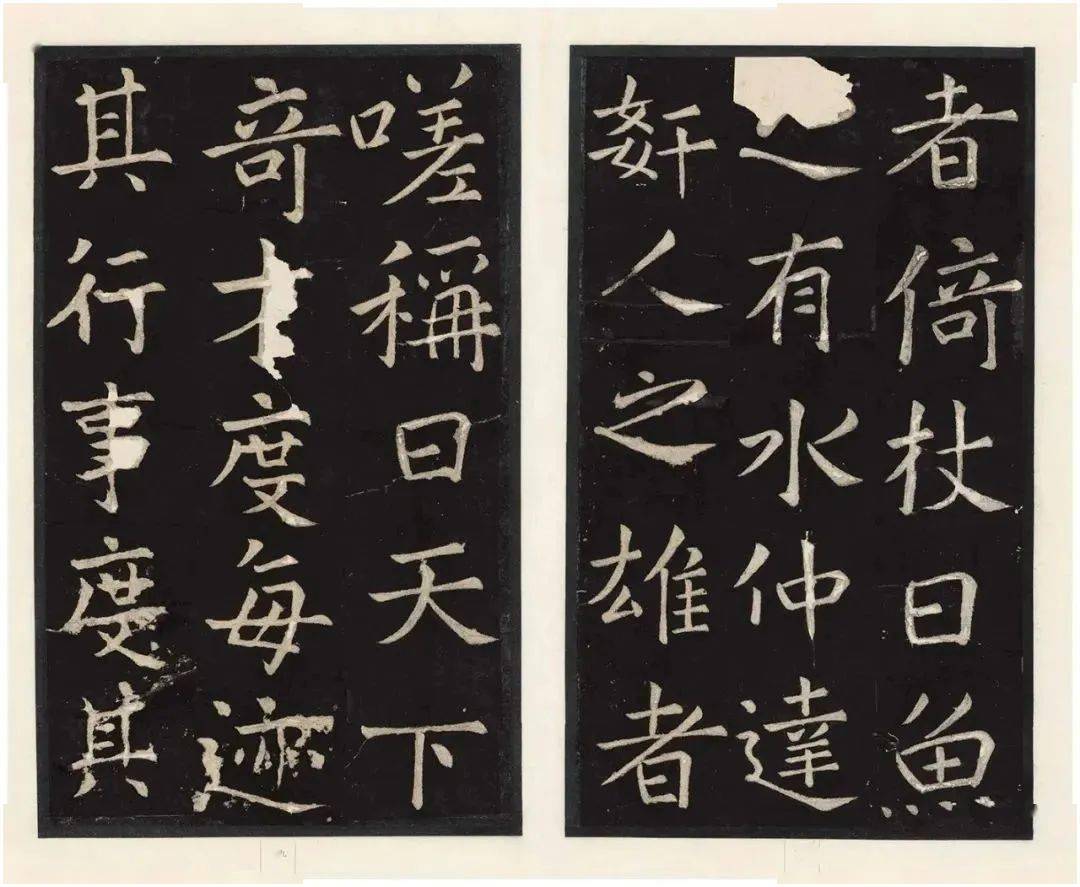 者倚杖曰魚
有水仲達
姧人之雄者
嗟稱曰天下
竒才度每迹
其行事度其